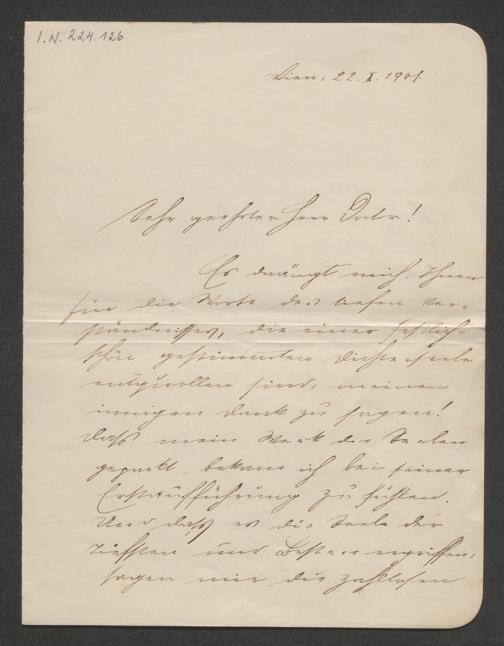 I.N. 224.126
Wien, 22. X. 1901.
Sehr geehrter Herr Doctor!
Es drängt mich, Ihnen
für die Worte des tiefen Ver-
ständnisses, die einer festlich
schön gestimmten Dichterseele
entquollen sind, meinen
innigen Dank zu sagen!
Dass mein Werk die Seelen
gepackt, bekam ich bei seiner
Erstaufführung zu fühlen.
Und dass es die Seele der
Tiefsten und Besten ergriffen,
sagen mir die zahllosen